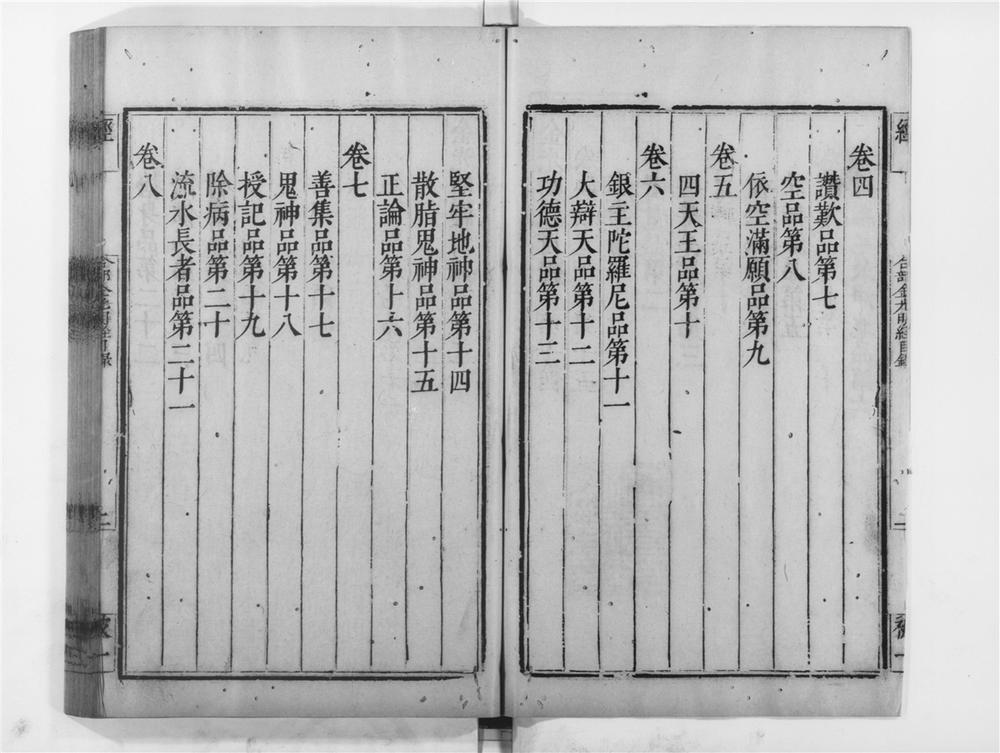 卷四
讚歎品第七
空品第八
依空滿願品第九
卷五
四天王品第十
卷六
銀主陀羅尼品第十一
大辯天品第十二
功德天品第十三
合部金光明經目錄
二
堅牢地神品第十四
散脂鬼神品第十五
正論品第十六
卷七
善集品第十七
鬼神品第十八
授記品第十九
除病品第二十
流水長者品第二十一
卷八